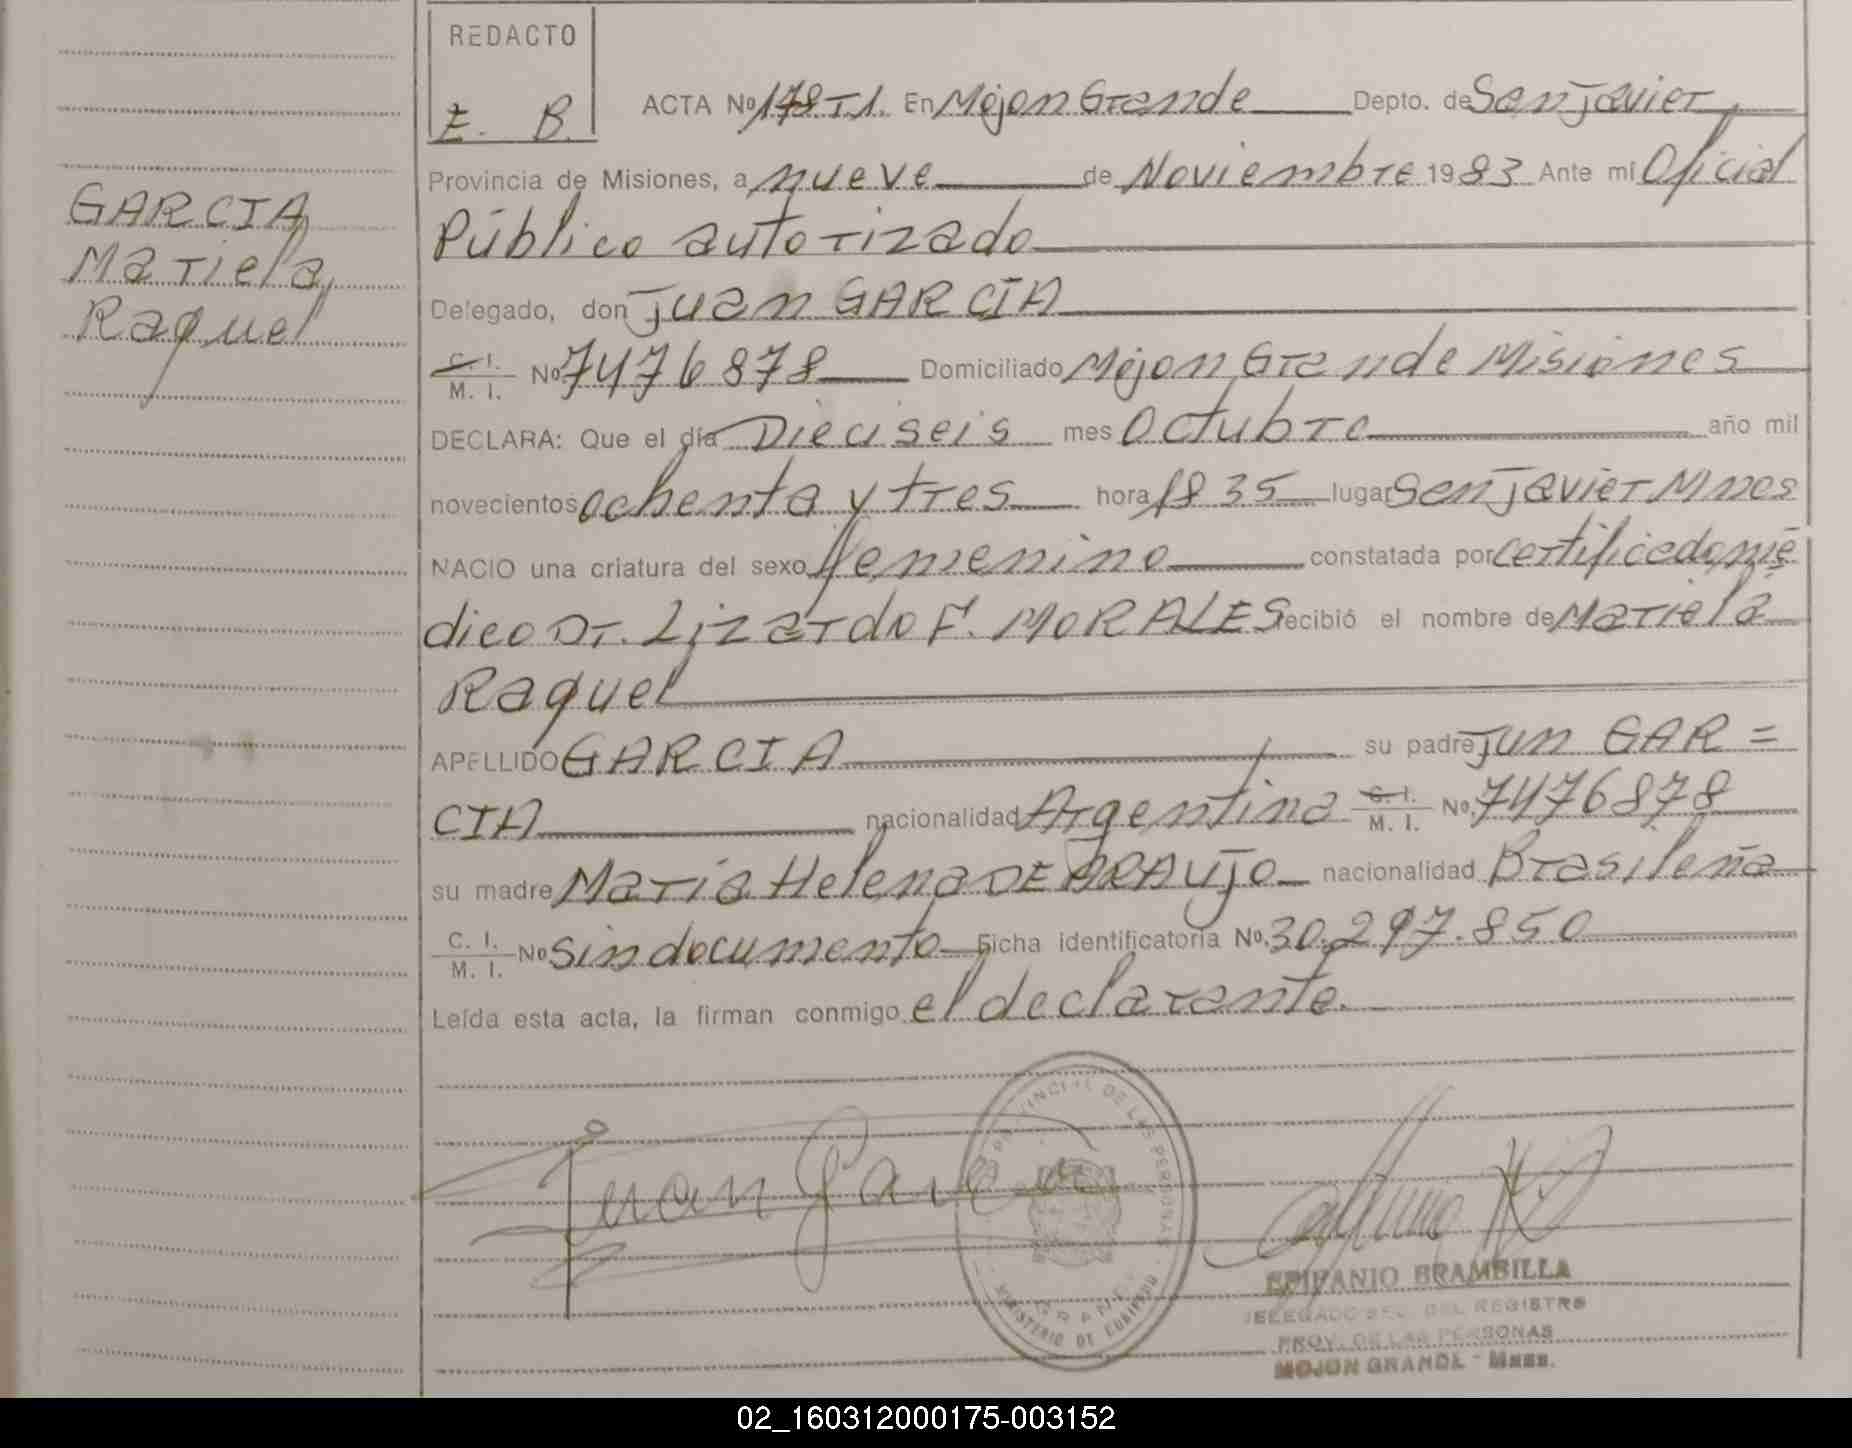 REDACTO
E. B.
GARCIA
Mariela
Raquel
ACTA Nº 178 T1. En Mojon Grande Depto. de San Javier
Provincia de Misiones, a nueve de Noviembre 1983 Ante mi Oficial
Público autorizado
Delegado, don Juan GARCIA
C. I.
M. I. Nº 7476878 Domiciliado Mojon Grande Misiones
DECLARA: Que el día Dieciseis mes Octubre año mil
novecientos ochenta y tres hora 18 35 lugar San Javier Mnes
NACIO una criatura del sexo femenino constatada por certificado mé
dico Dr. Lizardo F. MORALES recibió el nombre de Mariela
Raquel
APELLIDO GARCIA su padre Jun GAR =
CIA nacionalidad Argentina C. I.
M. I. Nº 7476878
su madre Maria Helena DE ARAUJO nacionalidad Brasileña
C. I.
M. I. Nº Sin documento Ficha identificatoria Nº. 30.297.850
Leída esta acta, la firman conmigo el declarante.
Juan Garcia
PROVINCIAL DE LAS PERSONAS
MINISTERIO DE GOBIERNO
EPIFANIO BRAMBILLA
DELEGADO DEL REGISTRO
PROV. DE LAS PERSONAS
MOJON GRANDE - Mnes.
02_160312000175-003152